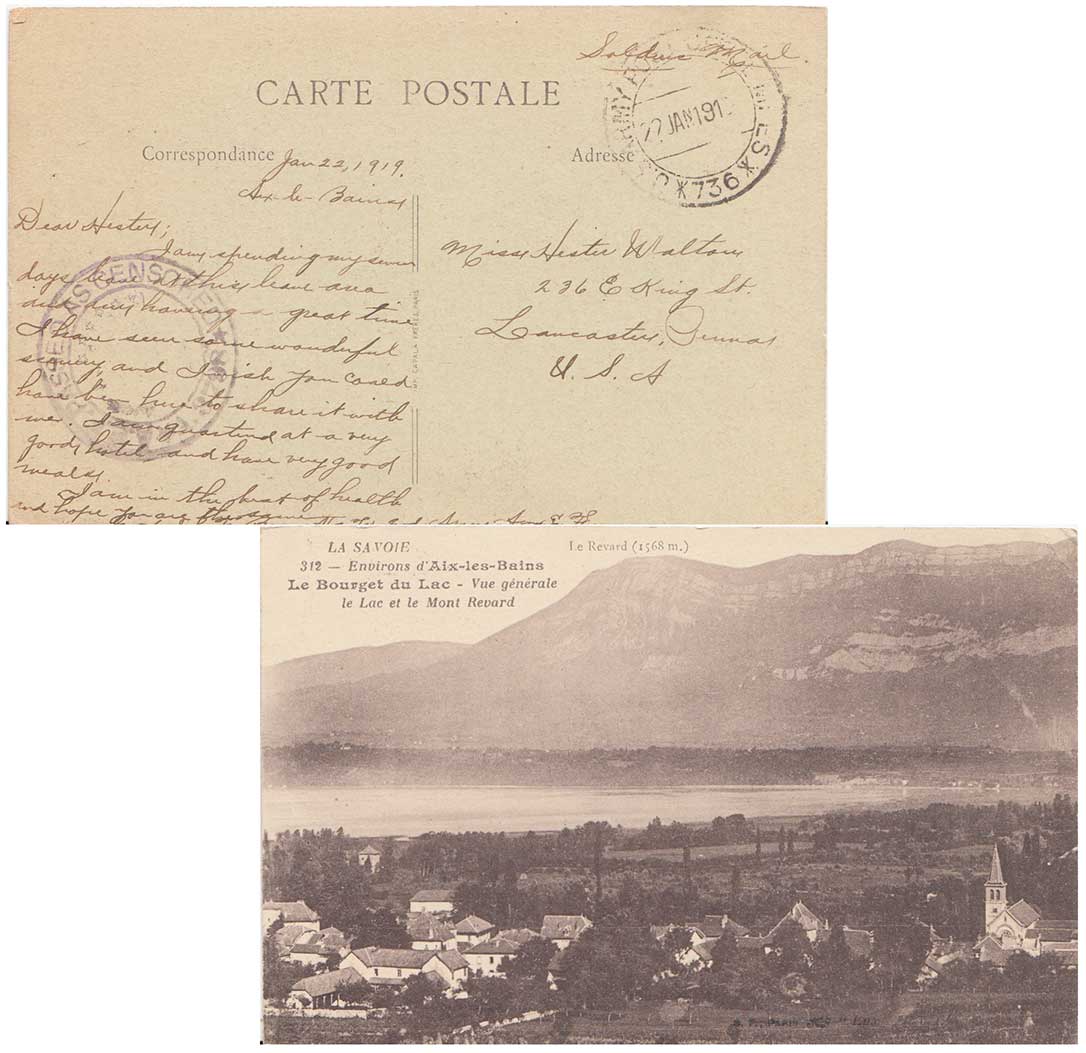 Soldiers Mail.
CARTE POSTALE
Correspondance
Adresse
Jan 22, 1919.
Aix-le-Bains
22 JAN 191
*736*
Dear Hester;
I am spending my seven
days leave at this leave area
and am having a great time
I have seen some wonderful
scenery, and I wish you could
have been here to share it with
me. I am quartered at a very
good hotel and have very good
meals.
I am in the best of health
and hope you are the same
Miss Hester Walton
236 E King St.
Lancaster, Penna
U. S. A
IMP. CATALA FRERES, PARIS
LA SAVOIE
312 — Environs d'Aix-les-Bains
Le Bourget du Lac - Vue générale
le Lac et le Mont Revard
Le Revard (1568 m.)